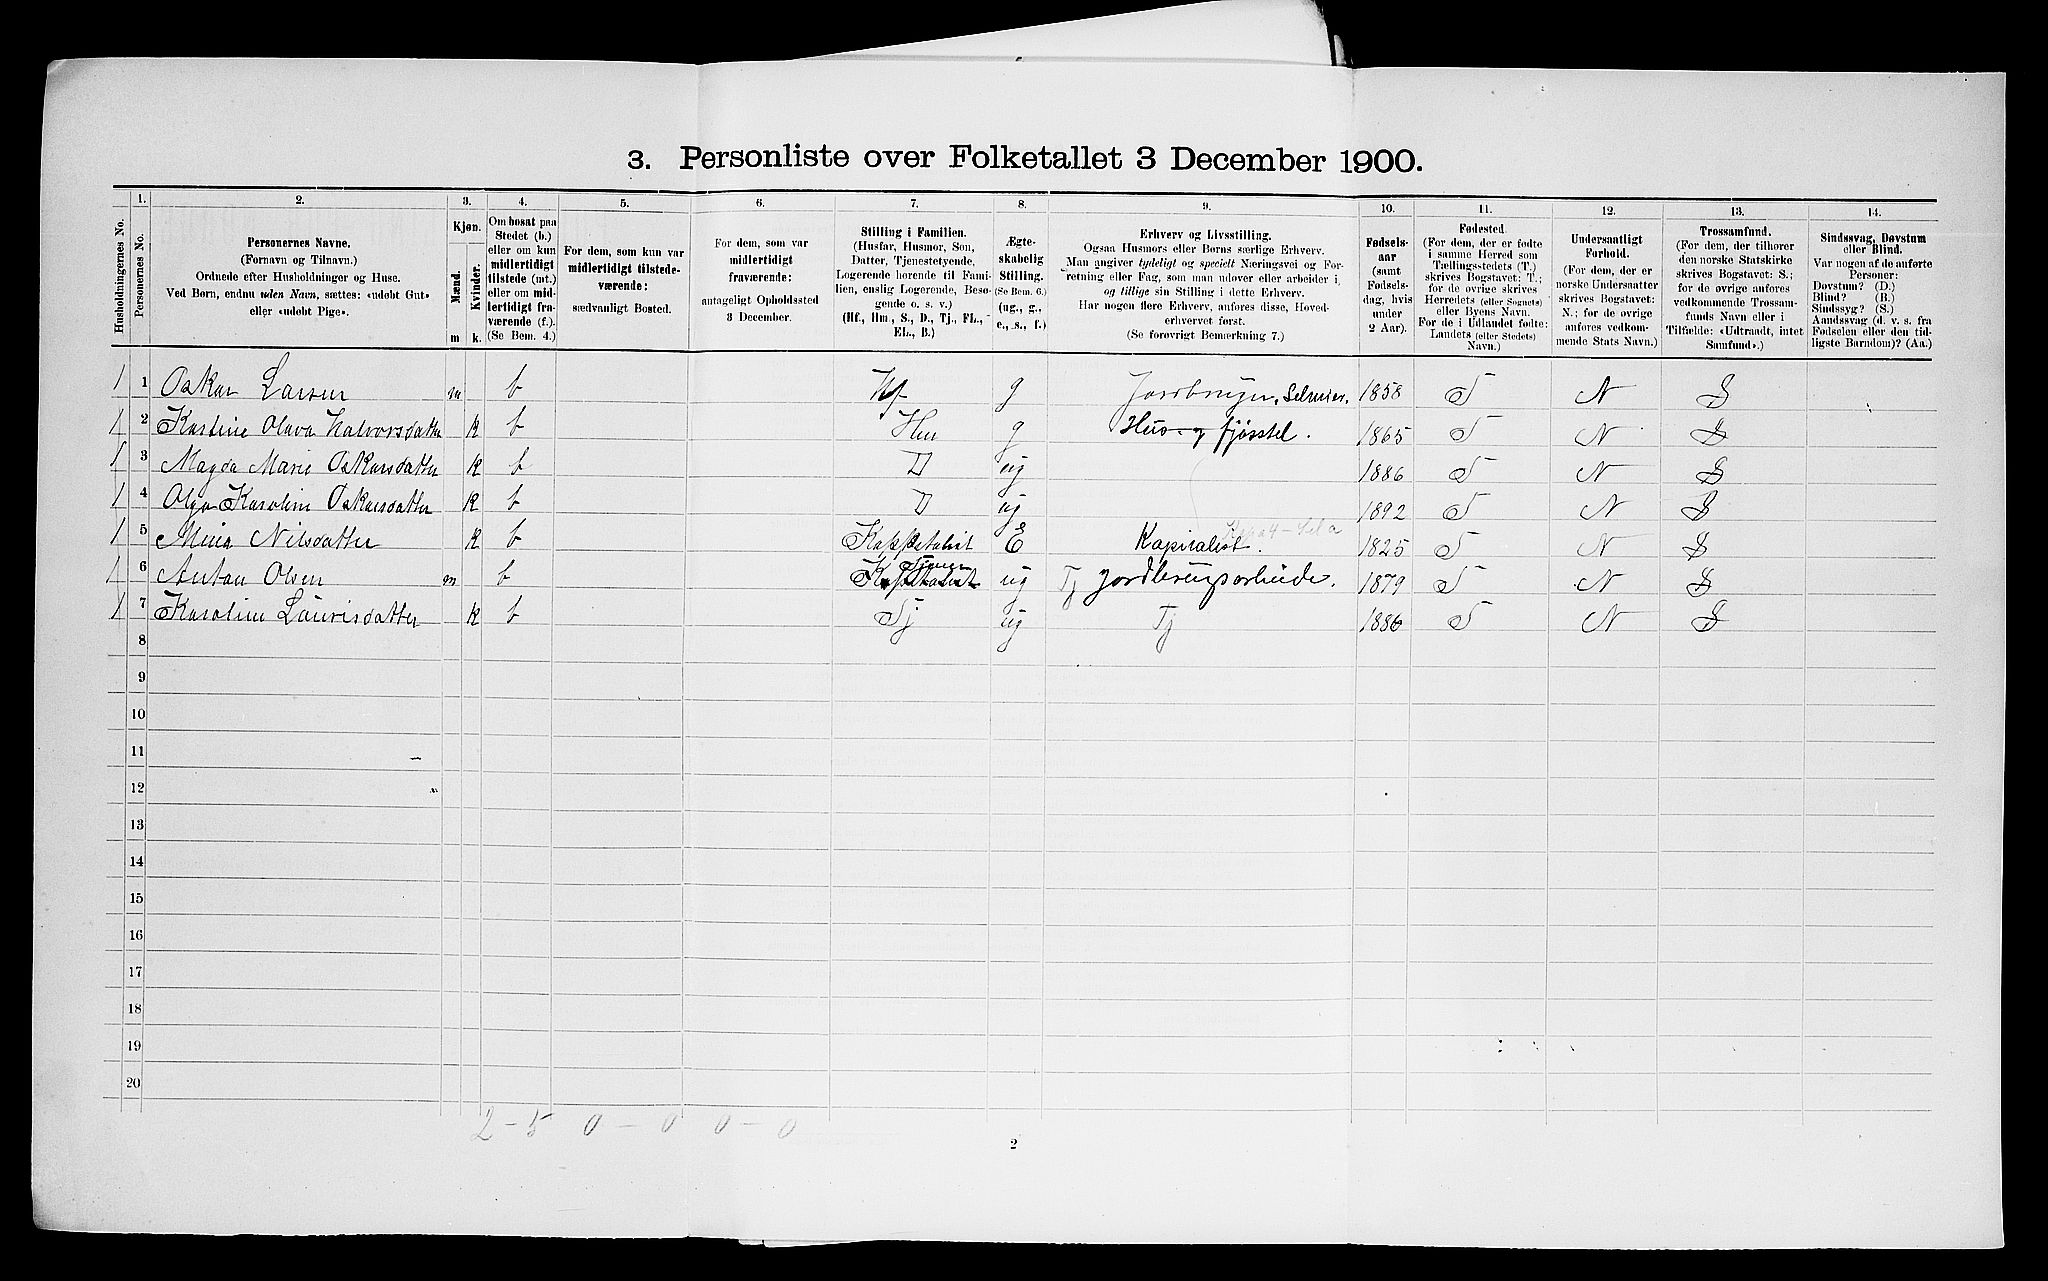 3. Personliste over Folketallet 3 December 1900.
Husholdningernes No.
1.
Personernes No.
2.
Personernes Navne.
(Fornavn og Tilnavn.)
Ordnede efter Husholdninger og Huse.
Ved Børn, endnu uden Navn, sættes: «udøbt Gut»
eller «udøbt Pige».
3.
Kjøn.
Mænd.
Kvinder.
m k.
4.
Om bosat paa
Stedet (b.)
eller om kun
midlertidigt
tilstede (mt.)
eller om mid-
lertidigt fra-
værende (f.).
(Se Bem. 4.)
5.
For dem, som kun var
midlertidigt tilstede-
værende:
sædvanligt Bosted.
6.
For dem, som var
midlertidigt
fraværende:
antageligt Opholdssted
3 December.
7.
Stilling i Familien.
(Husfar, Husmor, Søn,
Datter, Tjenestetyende,
Logerende hørende til Fami-
lien, enslig Logerende, Besø-
gende o. s. v.)
(Hf., Hm., S., D., Tj., FL.,
EL., B.)
8.
Ægte-
skabelig
Stilling.
(Se Bem. 6.)
(ug., g.,
e., s., f.)
9.
Erhverv og Livsstilling.
Ogsaa Husmors eller Børns særlige Erhverv.
Man angiver tydeligt og specielt Næringsvei og For-
retning eller Fag, som man udøver eller arbeider i,
og tillige sin Stilling i dette Erhverv.
Har nogen flere Erhverv, anføres disse, Hoved-
erhvervet først.
(Se forøvrigt Bemerkning 7.)
10.
Fødsels-
aar
(samt
Fødsels-
dag, hvis
under
2 Aar).
11.
Fødested.
(For dem, der er fødte
i samme Herred som
Tællingsstedets (T.)
skrives Bogstavet: T.;
for de øvrige skrives
Herredets (eller Sognets)
eller Byens Navn.
For de i Udlandet fødte:
Landets (eller Stedets)
Navn.)
12.
Undersaatligt
Forhold.
(For dem, der er
norske Undersaatter
skrives Bogstavet:
N.; for de øvrige
anføres vedkom-
mende Stats Navn.)
13.
Trossamfund.
(For dem, der tilhører
den norske Statskirke
skrives Bogstavet: S.;
for de øvrige anføres
vedkommende Trossam-
funds Navn eller i
Tilfælde: «Udtraadt, intet
Samfund».)
14.
Sindssvag, Døvstum
eller Blind.
Var nogen af de anførte
Personer:
Døvstum? (D.)
Blind? (B.)
Sindssyg? (S.)
Aandssvag (d. v. s. fra
Fødselen eller den tid-
ligste Barndom)? (Aa.)
1 1 Oskar Larsen m b Hf g Jordbruger, Selveier. 1858 T N S
1 2 Kastine Olava Halvorsdatter k b Hm g Hus- og fjøsstel. 1865 T N S
1 3 Magda Marie Oskarsdatter k b D ug 1886 T N S
1 4 Olga Karoline Oskarsdatter k b D ug 1892 T N S
1 5 Mina Nilsdatter k b Kappetalist E Kapitalist. 1825 T N S
1 6 Anton Olsen m b Kappetalist Tjener ug Tj jordbrugsarbeide. 1879 T N S
1 7 Karoline Laurisdatter k b Tj ug Tj 1886 T N S
8
9
10
11
12
13
14
15
16
17
18
19
20
2 - 5 0 - 0 0 - 0
2